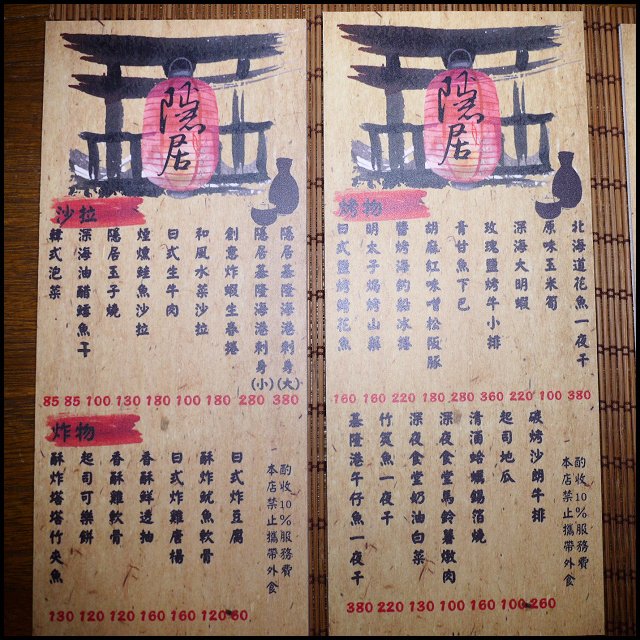 隱居
沙拉
隱居基隆海港刺身(大)
隱居基隆海港刺身(小)
創意炸蝦生春捲
和風水菜沙拉
日式生牛肉
煙燻鮭魚沙拉
隱居玉子燒
深海油醋鱈魚干
韓式泡菜
85 85 100 130 180 100 180 280 380
炸物
酌收10%服務費
本店禁止攜帶外食
日式炸豆腐
酥炸魷魚軟骨
日式炸雞唐揚
香酥鮮透抽
香酥雞軟骨
起司可樂餅
酥炸塔塔竹夾魚
130 120 120 160 160 120 60
隱居
烤物
北海道花魚一夜干
原味玉米筍
深海大明蝦
玫瑰鹽烤牛小排
青甘魚下巴
胡麻紅味噌松阪豚
醬烤海釣船冰捲
明太子焗烤山藥
日式鹽烤鯖花魚
160 160 220 180 280 360 220 100 380
酌收10%服務費
本店禁止攜帶外食
碳烤沙朗牛排
起司地瓜
清酒蛤蠣錫箔燒
深夜食堂馬鈴薯燉肉
深夜食堂奶油白菜
竹筴魚一夜干
基隆港午仔魚一夜干
380 220 130 100 160 100 260